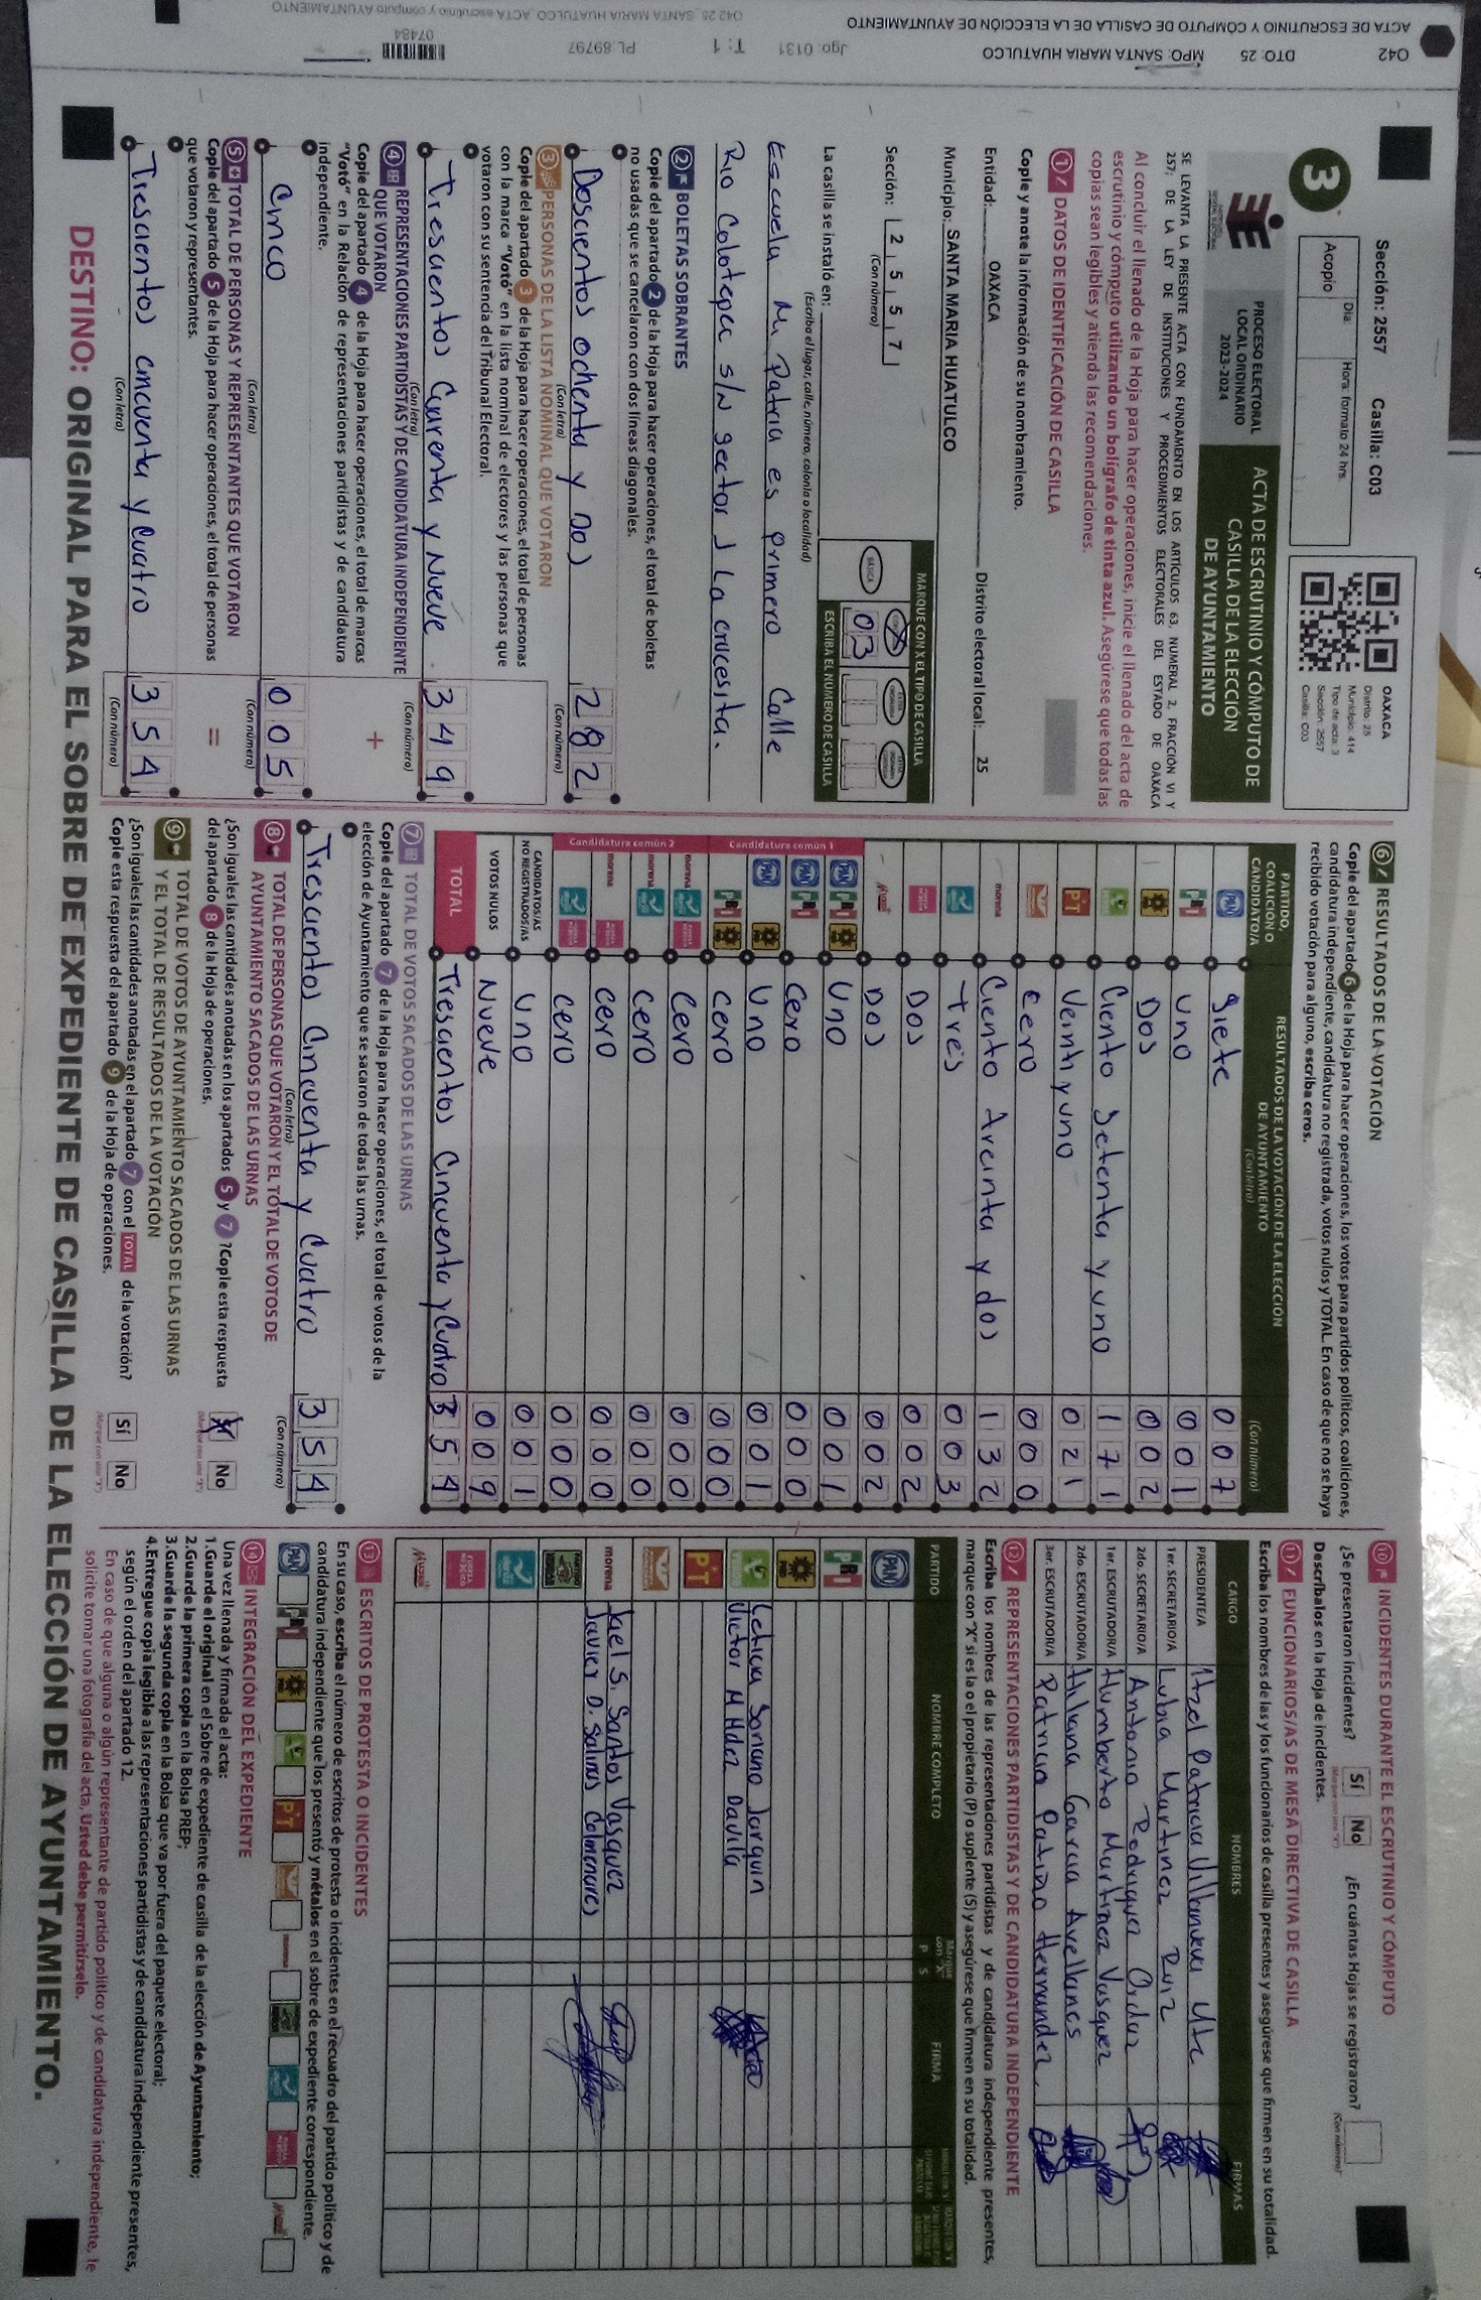 Sección: 2557 Casilla: C03
3
Día: Hora: formato 24 hrs.
Acopio
OAXACA
Distrito: 25
Municipio: 414
Tipo de acta: 3
Sección: 2557
Casilla: C03
PROCESO ELECTORAL
LOCAL ORDINARIO
2023-2024
ACTA DE ESCRUTINIO Y CÓMPUTO DE
CASILLA DE LA ELECCIÓN
DE AYUNTAMIENTO
SE LEVANTA LA PRESENTE ACTA CON FUNDAMENTO EN LOS ARTÍCULOS 63, NUMERAL 2, FRACCIÓN VI Y
257; DE LA LEY DE INSTITUCIONES Y PROCEDIMIENTOS ELECTORALES DEL ESTADO DE OAXACA
Al concluir el llenado de la Hoja para hacer operaciones, inicie el llenado del acta de
escrutinio y cómputo utilizando un bolígrafo de tinta azul. Asegúrese que todas las
copias sean legibles y atienda las recomendaciones.
1 DATOS DE IDENTIFICACIÓN DE CASILLA
Copie y anote la información de su nombramiento.
Entidad: OAXACA Distrito electoral local: 25
Municipio: SANTA MARIA HUATULCO
Sección: 2557
(Con número)
MARQUE CON X EL TIPO DE CASILLA
BÁSICA
03
ESCRIBA EL NÚMERO DE CASILLA
La casilla se instaló en:
(Escriba el lugar, calle, número, colonia o localidad)
Escuela Mi Patria es primero Calle
Rio Colotepec s/n Sector J La crucesita.
2 BOLETAS SOBRANTES
Copie del apartado 2 de la Hoja para hacer operaciones, el total de boletas
no usadas que se cancelaron con dos líneas diagonales.
Doscientos ochenta y Dos 282
(Con letra) (Con número)
3 PERSONAS DE LA LISTA NOMINAL QUE VOTARON
Copie del apartado 3 de la Hoja para hacer operaciones, el total de personas
con la marca "Votó" en la lista nominal de electores y las personas que
votaron con su sentencia del Tribunal Electoral.
Trescientos Cuarenta y Nueve 349
(Con letra) (Con número)
4 REPRESENTACIONES PARTIDISTAS Y DE CANDIDATURA INDEPENDIENTE
QUE VOTARON
+
Copie del apartado 4 de la Hoja para hacer operaciones, el total de marcas
"Votó" en la Relación de representaciones partidistas y de candidatura
independiente.
Cinco 005
(Con letra) (Con número)
5 TOTAL DE PERSONAS Y REPRESENTANTES QUE VOTARON
=
Copie del apartado 5 de la Hoja para hacer operaciones, el total de personas
que votaron y representantes.
Trescientos cincuenta y Cuatro 354
(Con letra) (Con número)
6 RESULTADOS DE LA VOTACIÓN
Copie del apartado 6 de la Hoja para hacer operaciones, los votos para partidos políticos, coaliciones,
candidatura independiente, candidatura no registrada, votos nulos y TOTAL. En caso de que no se haya
recibido votación para alguno, escriba ceros.
PARTIDO,
COALICIÓN O
CANDIDATO/A
RESULTADOS DE LA VOTACIÓN DE LA ELECCIÓN
DE AYUNTAMIENTO
(Con letra) (Con número)
PAN Siete 007
PRI uno 001
PRD Dos 002
Ciento Setenta y uno 171
PT Veinti y uno 021
Cero 000
morena Ciento treinta y dos 132
tres 003
Dos 002
Dos 002
Candidatura común 1
PAN PRI PRD Uno 001
PAN PRI Cero 000
PAN PRD Uno 001
PRI PRD Cero 000
Candidatura común 2
morena Cero 000
morena Cero 000
morena Cero 000
Cero 000
CANDIDATOS/AS
NO REGISTRADOS/AS Uno 001
VOTOS NULOS Nueve 009
TOTAL Trescientos Cincuenta y Cuatro 354
7 TOTAL DE VOTOS SACADOS DE LAS URNAS
Copie del apartado 7 de la Hoja para hacer operaciones, el total de votos de la
elección de Ayuntamiento que se sacaron de todas las urnas.
Trescientos Cincuenta y Cuatro 354
(Con letra) (Con número)
8 TOTAL DE PERSONAS QUE VOTARON Y EL TOTAL DE VOTOS DE
AYUNTAMIENTO SACADOS DE LAS URNAS
¿Son iguales las cantidades anotadas en los apartados 5 y 7? Copie esta respuesta
del apartado 8 de la Hoja de operaciones.
Sí No
9 TOTAL DE VOTOS DE AYUNTAMIENTO SACADOS DE LAS URNAS
Y EL TOTAL DE RESULTADOS DE LA VOTACIÓN
¿Son iguales las cantidades anotadas en el apartado 7 con el TOTAL de la votación?
Copie esta respuesta del apartado 9 de la Hoja de operaciones.
Sí No
10 INCIDENTES DURANTE EL ESCRUTINIO Y CÓMPUTO
¿Se presentaron incidentes? Sí No ¿En cuántas Hojas se registraron?
(Con número)
Descríbalos en la Hoja de incidentes.
11 FUNCIONARIOS/AS DE MESA DIRECTIVA DE CASILLA
Escriba los nombres de las y los funcionarios de casilla presentes y asegúrese que firmen en su totalidad.
CARGO NOMBRES FIRMAS
PRESIDENTE/A Itzel Patricia Villanueva Utc
1er. SECRETARIO/A Lubia Martinez Ruiz
2do. SECRETARIO/A Antonio Rodriguez
1er. ESCRUTADOR/A Humberto Martinez Vasquez
2do. ESCRUTADOR/A Hiliana Garcia Avellanes
3er. ESCRUTADOR/A Patricio Patino Hernandez
12 REPRESENTACIONES PARTIDISTAS Y DE CANDIDATURA INDEPENDIENTE
Escriba los nombres de las representaciones partidistas y de candidatura independiente presentes,
marque con "X" si es la o el propietario (P) o suplente (S) y asegúrese que firmen en su totalidad.
PARTIDO NOMBRE COMPLETO P S FIRMA
PAN
PRI
PRD
Leticia Soriano Jarquin
Victor M Hdez Davila
PT
morena Jael S. Santos Vasquez
Javier D. Salinas Colmenares
13 ESCRITOS DE PROTESTA O INCIDENTES
En su caso, escriba el número de escritos de protesta o incidentes en el recuadro del partido político y de
candidatura independiente que los presentó y métalos en el sobre de expediente correspondiente.
PAN PRI PRD PT morena
14 INTEGRACIÓN DEL EXPEDIENTE
Una vez llenada y firmada el acta:
1.Guarde el original en el Sobre de expediente de casilla de la elección de Ayuntamiento;
2.Guarde la primera copia en la Bolsa PREP;
3.Guarde la segunda copia en la Bolsa que va por fuera del paquete electoral;
4.Entregue copia legible a las representaciones partidistas y de candidatura independiente presentes,
según el orden del apartado 12.
En caso de que alguna o algún representante de partido político y de candidatura independiente, le
solicite tomar una fotografía del acta, Usted debe permitírselo.
DESTINO: ORIGINAL PARA EL SOBRE DE EXPEDIENTE DE CASILLA DE LA ELECCIÓN DE AYUNTAMIENTO.
O42 DTO: 25 MPO: SANTA MARIA HUATULCO Jgo: 0131 T: 1 PL:89797 07484
ACTA DE ESCRUTINIO Y CÓMPUTO DE CASILLA DE LA ELECCIÓN DE AYUNTAMIENTO
O42 25_SANTA MARIA HUATULCO_ACTA escrutinio y computo AYUNTAMIENTO